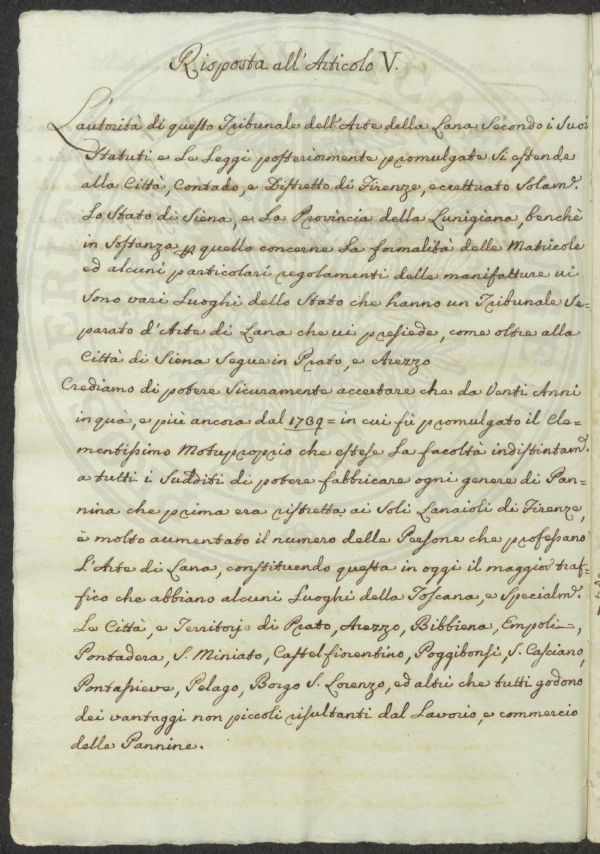 Risposta all'Articolo V.
L'autorità di questo Tribunale dell'Arte della Lana Secondo i Suoi
Statuti e Le Leggi posteriormente promulgate Si estende
alla Città, Contado, e Distretto di Firenze, eccettuato Solam.e
Lo Stato di Siena, e La Provincia della Lunigiana, benchè
in Sostanza p quello concerne La formalità delle Matricole
ed alcuni particolari regolamenti delle manifatture vi
Sono vari Luoghi dello Stato che hanno un Tribunale Se=
parato d'Arte di Lana che vi presiede, come oltre alla
Città di Siena Segue in Prato, e Arezzo
Crediamo di potere Sicuramente accertare che da Venti Anni
in quà, e più ancora dal 1739= in cui fù promulgato il Cle=
mentissimo Motuproprio che estese La facoltà indistintam.e
a tutti i Sudditi di potere fabbricare ogni genere di Pan=
nina che prima era ristretta ai Soli Lanaioli di Firenze,
è molto aumentato il numero delle Persone che professano
L'Arte di Lana, constituendo questa in oggi il maggior traf=
fico che abbiano alcuni Luoghi della Toscana, e Specialm.e
Le Città, e Territorj di Prato, Arezzo, Bibbiena, Empoli,
Pontadera, S. Miniato, Castelfiorentino, Poggibonsi, S. Casciano,
Pontasieve, Pelago, Borgo S. Lorenzo, ed altri che tutti godono
dei vantaggi non piccoli risultanti dal Lavorio, e commercio
delle Pannine.